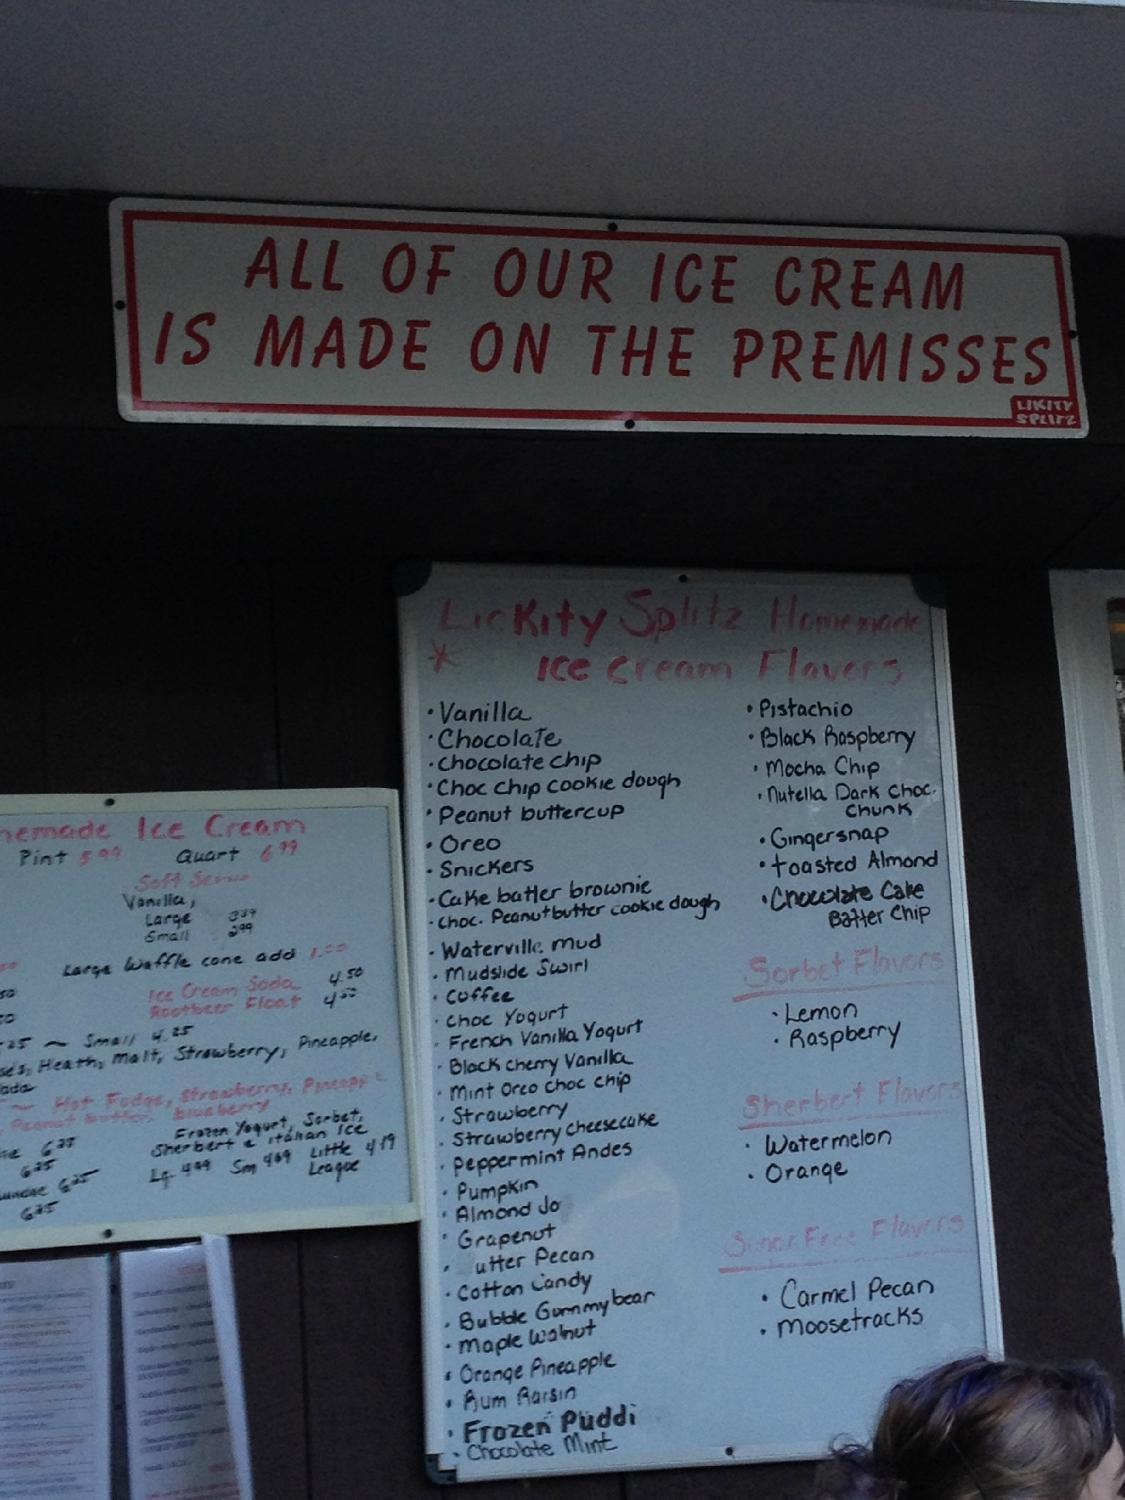 ALL OF OUR ICE CREAM
IS MADE ON THE PREMISSES
LIKITY
SPLITZ
LicKity Splitz Homemade
* Ice Cream Flavers
• Vanilla
• Chocolate
• Chocolate chip
• Choc chip cookie dough
• Peanut buttercup
• Oreo
• Snickers
• Cake batter brownie
• choc. Peanutbutter cookie dough
• Waterville mud
• Mudslide Swirl
• Coffee
• Choc Yogurt
• French Vanilla Yogurt
• Black cherry Vanilla
• Mint Oreo choc chip
• Strawberry
• Strawberry cheesecake
• Peppermint Andes
• Pumpkin
• Almond Jo
• Grapenut
• utter Pecan
• Cotton Candy
• Bubble Gummybear
• Maple Walnut
• Orange Pineapple
• Rum Raisin
• Frozen Puddi
• Chocolate Mint
• Pistachio
• Black Raspberry
• Mocha Chip
• Nutella Dark Choc.
Chunk
• Gingersnap
• toasted Almond
• Chocolate Cake
Batter Chip
Sorbet Flavors
• Lemon
• Raspberry
Sherbert Flavors
• Watermelon
• Orange
Free Flavors
• Carmel Pecan
• Moosetracks
nemade Ice Cream
Pint 5.99 Quart 6.99
Soft Serve
Vanilla,
Large
Small 2.99
Large Waffle cone add 1.00
Ice Cream Soda 4.50
Rootbeer Float 4.50
~ Small 4.25
Heath, malt, Strawberry, Pineapple,
ada
~ Hot Fudge, Strawberry, Pineapple
Peanut butter, blueberry
Frozen Yogurt, Sorbet,
Sherbert & italian Ice
Lg 4.99 Sm 4.69 Little 4.19
League
6.25
6.25
undae 6.25
6.25